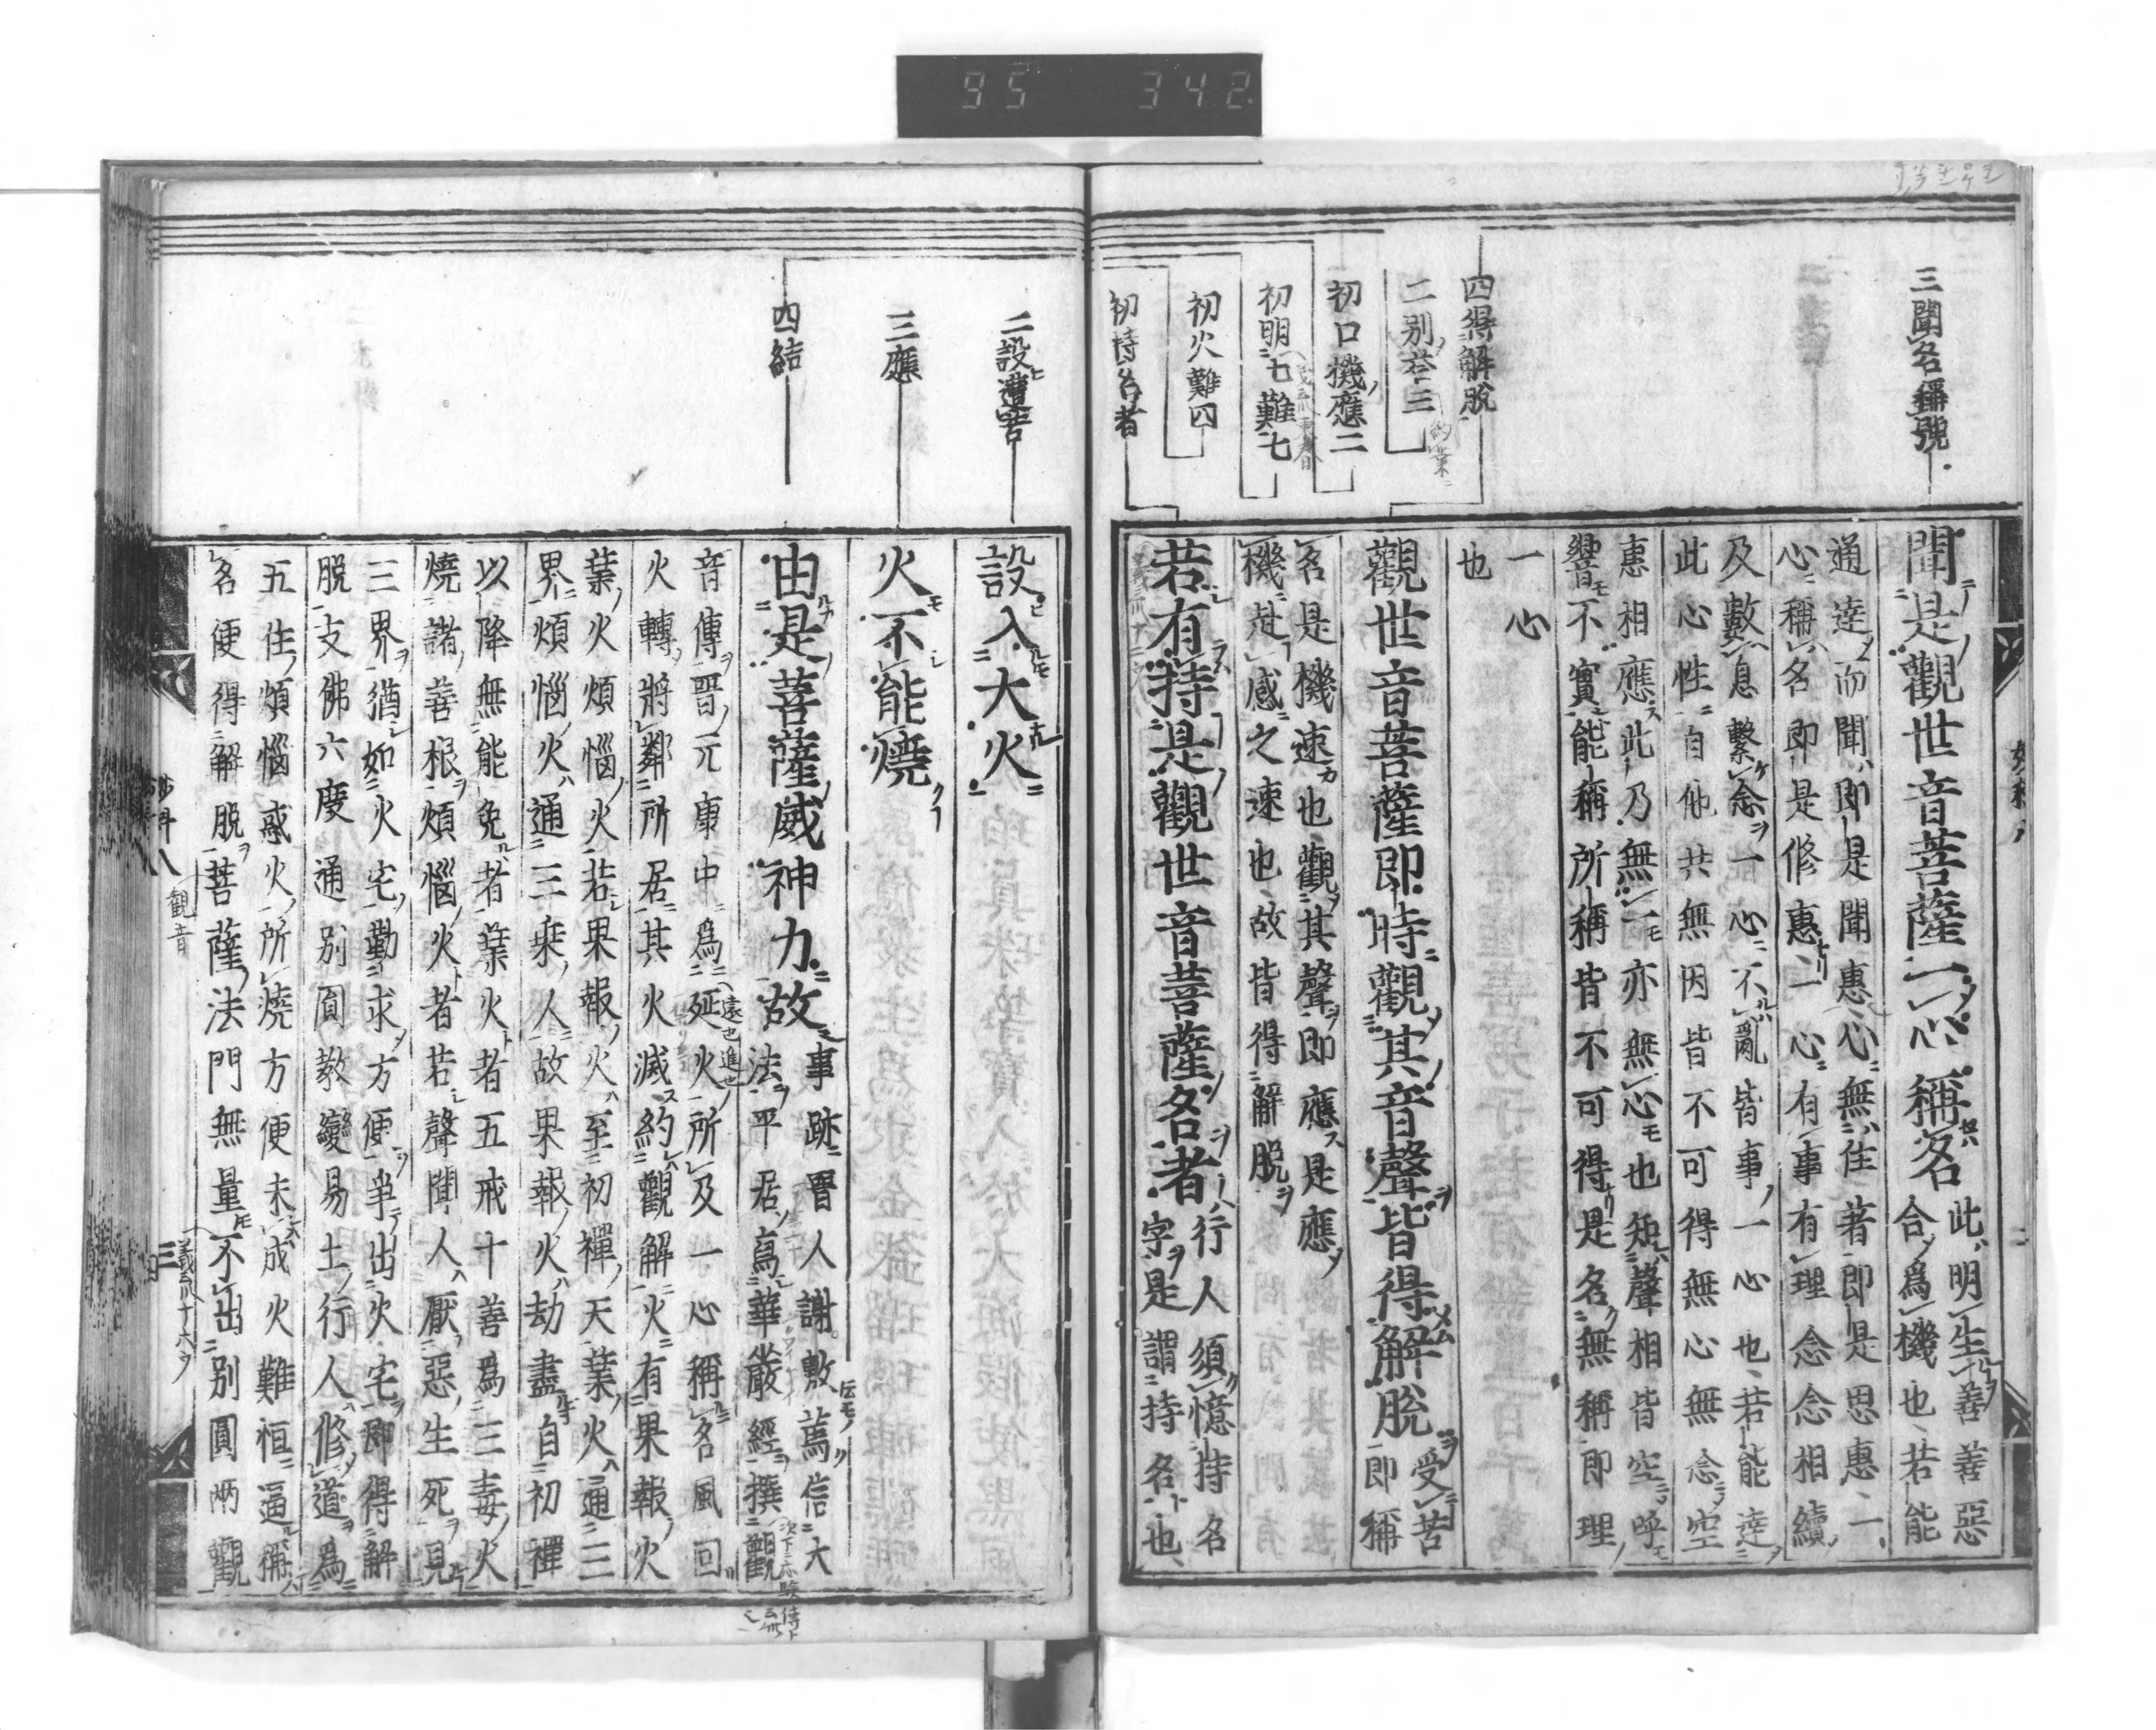 95 342
三聞名稱號
四得解脫
二別荅三
初口機應二
初明七難七
初火難四
初持名者
聞是觀世音菩薩一心稱名
此明生善善惡
合爲機也若能
通達而聞即是聞惠心無住著即是思惠一
心稱名即是修惠一心有事有理念念相續
及數息繫念一心不亂皆事一心也若能達
此心性自他共無因皆不可得無心無念空
惠相應此乃無一亦無心也矧聲相皆空呼
響不實能稱所稱皆不可得是名無稱即理
一心
也
觀世音菩薩即時觀其音聲皆得解脫
受苦
即稱
名是機速也觀其聲即應是應
機赴感之速也故皆得解脫
若有持是觀世音菩薩名者
行人須憶持名
字是謂持名也
二設遭害
三應
四結
設入大火
火不能燒
由是菩薩威神力故
事跡晋人謝敷
法平居寫華嚴經撰觀
音傳晋元康中爲延火所及一心稱名風回
火轉將鄰所居其火滅約觀解火有果報火
業火煩惱火若果報火至初禪天業火通三
界煩惱火通三乘人故果報火劫盡自初禪
以降無能免者業火者五戒十善爲三毒火
燒諸善根煩惱火者若聲聞人厭惡生死見
三界猶如火宅勤求方便爭出火宅即得解
脫支佛六度通別圓教變易土行人修道爲
五住煩惱惑火所燒方便未成火難恒逼稱
名便得解脫菩薩法門無量不出別圓兩觀
觀音